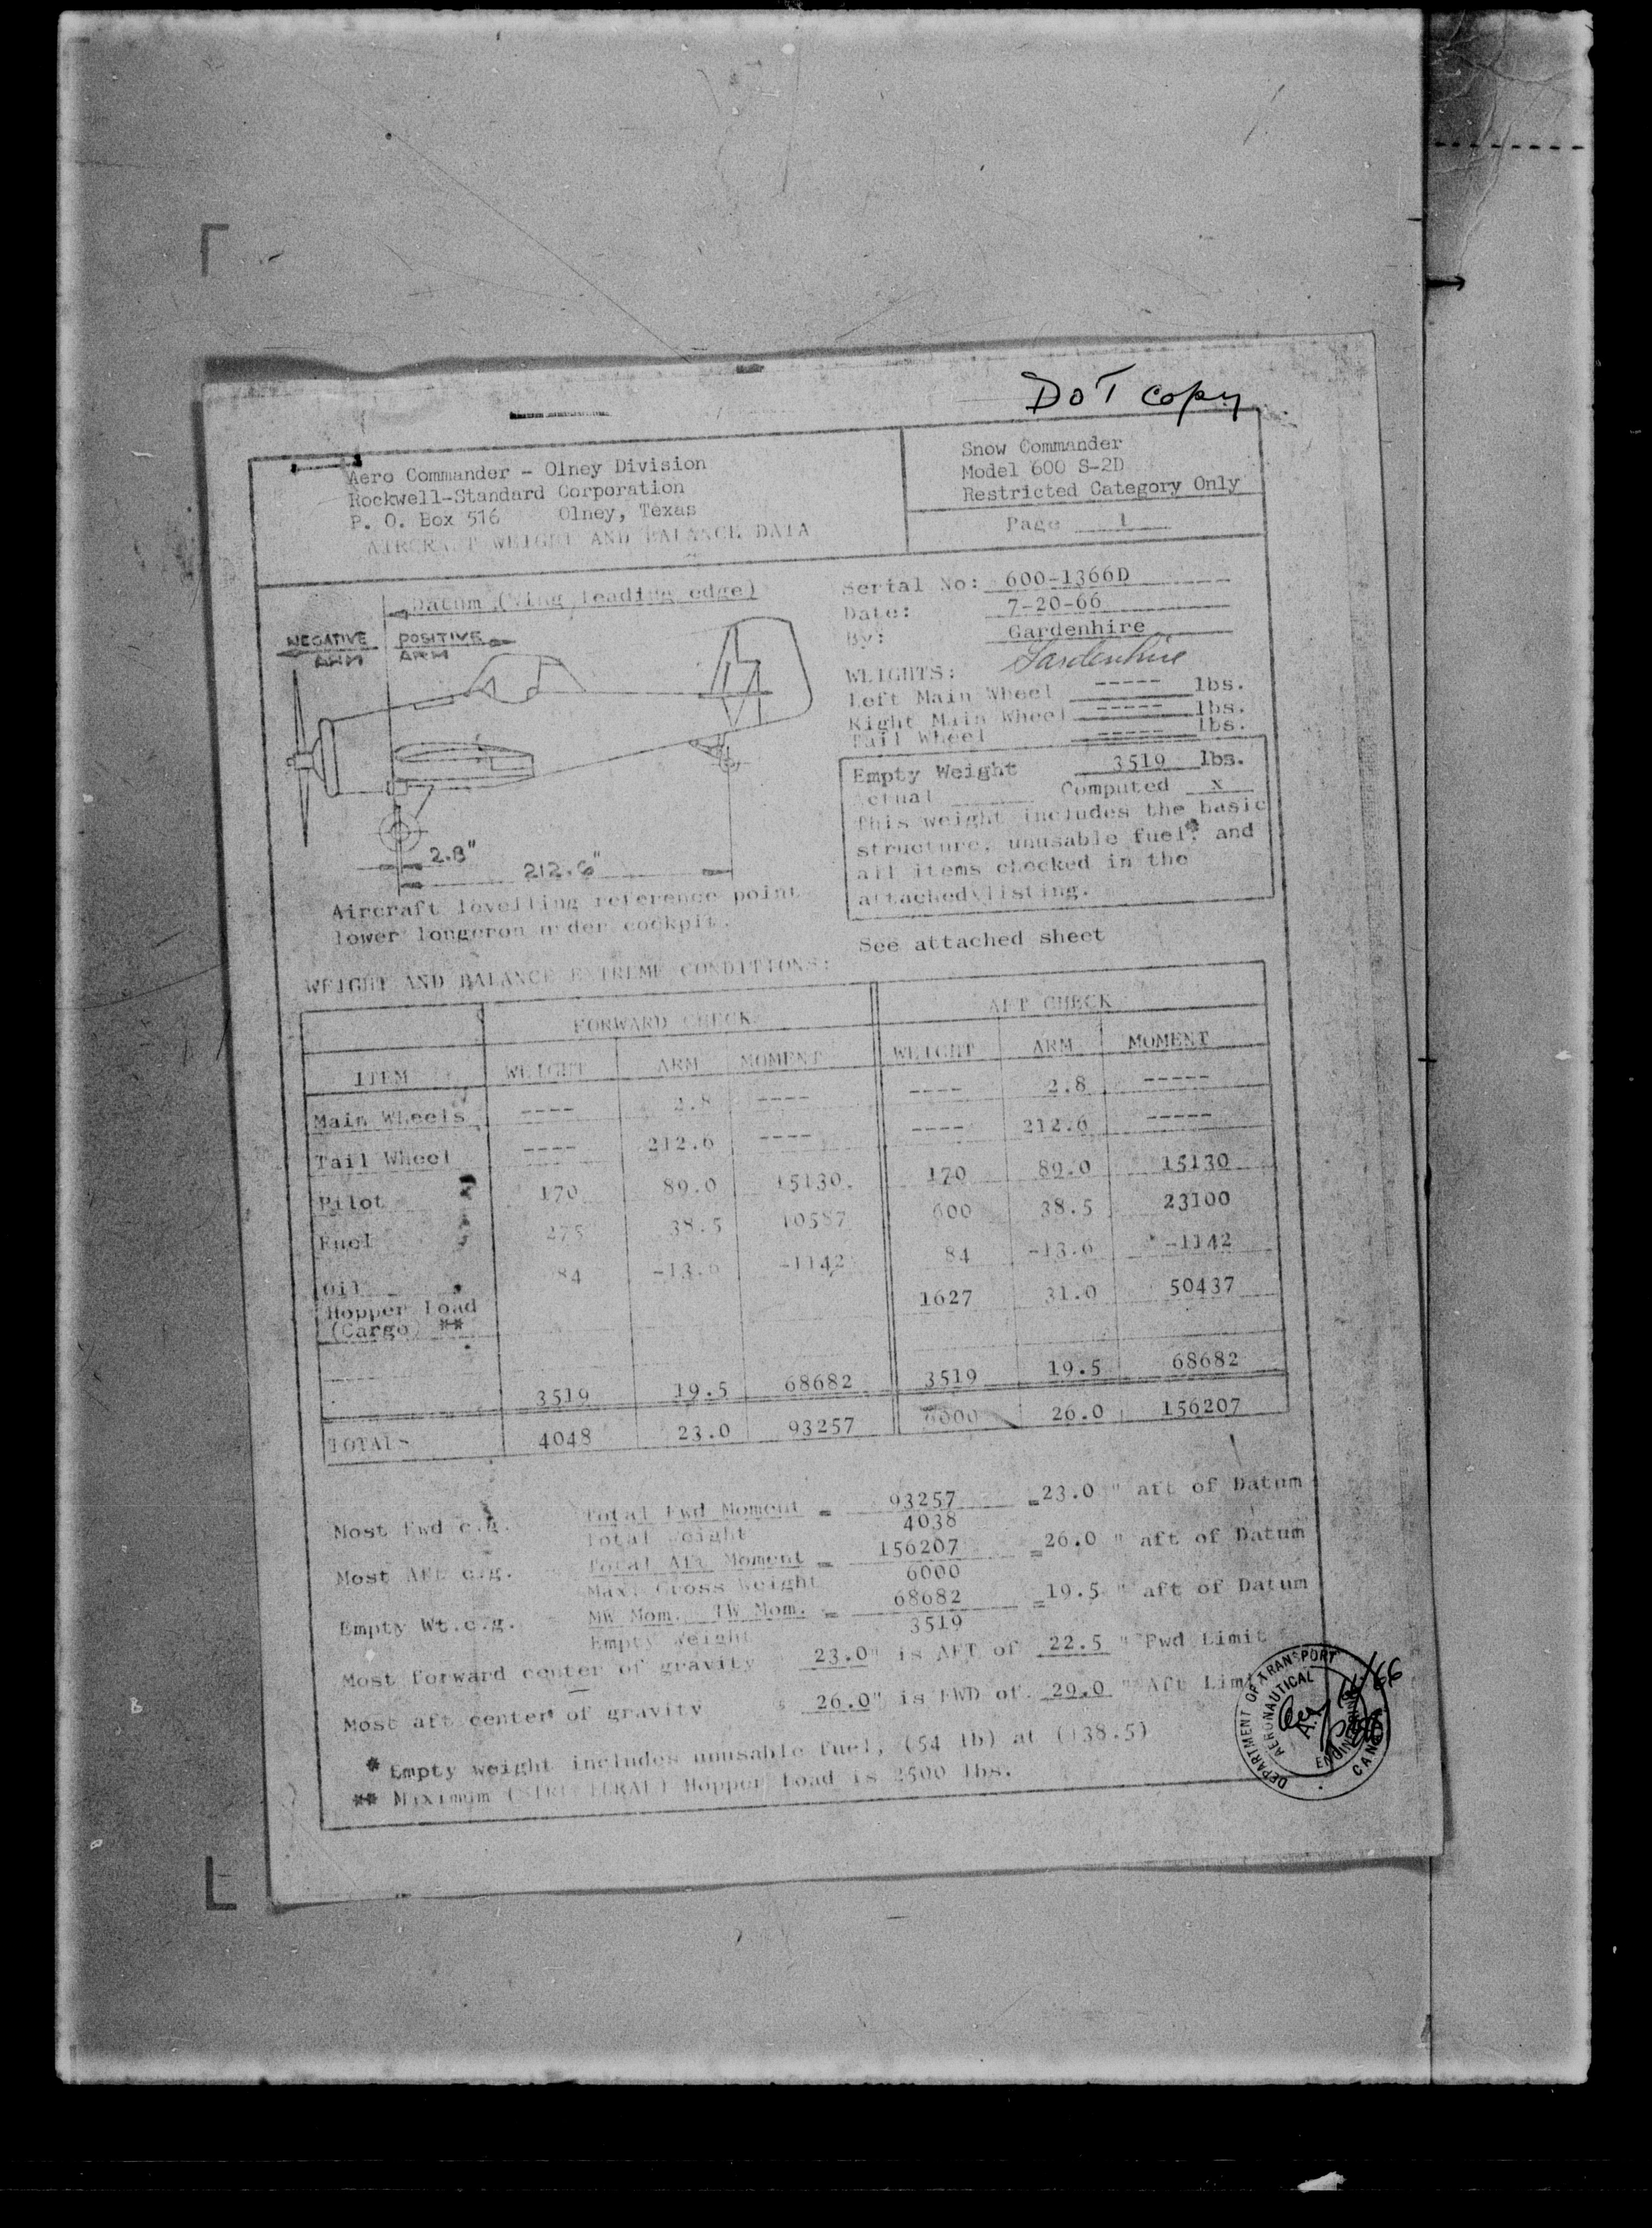 DOT copy
Aero Commander - Olney Division
Rockwell-Standard Corporation
P. O. Box 516 Olney, Texas
AIRCRAFT WEIGHT AND BALANCE DATA
Snow Commander
Model 600 S-2D
Restricted Category Only
Page 1
Datum (Wing leading edge)
NEGATIVE ARM
POSITIVE ARM
2.8"
212.6"
Aircraft levelling reference point
lower longeron under cockpit.
Serial No: 600-1366D
Date: 7-20-66
By: Gardenhire
Gardenhire
WEIGHTS:
Left Main Wheel ----- lbs.
Right Main Wheel ----- lbs.
Tail Wheel ----- lbs.
Empty Weight 3519 lbs.
Actual Computed x
This weight includes the basic
structure, unusable fuel*, and
all items checked in the
attached listing.
See attached sheet
WEIGHT AND BALANCE EXTREME CONDITIONS:
FORWARD CHECK AFT CHECK
ITEM WEIGHT ARM MOMENT WEIGHT ARM MOMENT
Main Wheels ---- 2.8 ---- ---- 2.8 -----
Tail Wheel ---- 212.6 ---- ---- 212.6 -----
Pilot 170 89.0 15130 170 89.0 15130
Fuel 275 38.5 10587 600 38.5 23100
Oil 84 -13.6 -1142 84 -13.6 -1142
Hopper Load
(Cargo) ** 1627 31.0 50437
3519 19.5 68682 3519 19.5 68682
TOTALS 4048 23.0 93257 6000 26.0 156207
Most Fwd c.g. Total Fwd Moment = 93257 = 23.0 " aft of Datum
Total Weight 4038
Most Aft c.g. Total Aft Moment = 156207 = 26.0 " aft of Datum
Max. Gross Weight 6000
Empty Wt.c.g. MW Mom. TW Mom. = 68682 = 19.5 " aft of Datum
Empty Weight 3519
Most forward center of gravity 23.0" is AFT of 22.5 " Fwd Limit
Most aft center of gravity 26.0" is FWD of 29.0 " Aft Limit
* Empty weight includes unusable fuel, (54 lb) at (+38.5)
** Maximum (STRUCTURAL) Hopper Load is 2500 lbs.
DEPARTMENT OF TRANSPORT
AERONAUTICAL
ENGINEERING
CANADA